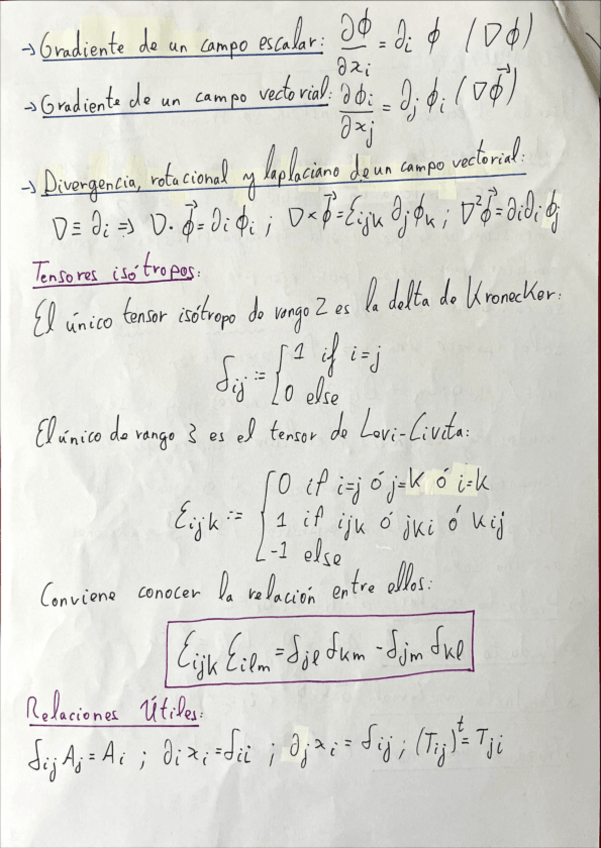 → Gradiente de un campo escalar: ∂ϕ/∂xᵢ = ∂ᵢ ϕ (∇ϕ)
→ Gradiente de un campo vectorial: ∂ϕᵢ/∂xⱼ = ∂ⱼ ϕᵢ (∇ϕ⃗)
→ Divergencia, rotacional y laplaciano de un campo vectorial:
∇ ≡ ∂ᵢ ⇒ ∇·ϕ⃗ = ∂ᵢ ϕᵢ ; ∇×ϕ⃗ = Ɛᵢⱼₖ ∂ⱼ ϕₖ ; ∇²ϕ⃗ = ∂ᵢ∂ᵢ ϕⱼ
Tensores isótropos:
El único tensor isótropo de rango 2 es la delta de Kronecker:
δᵢⱼ := { 1 if i=j
0 else
El único de rango 3 es el tensor de Levi-Civita:
Ɛᵢⱼₖ := { 0 if i=j ó j=k ó i=k
1 if ijk ó jki ó kij
-1 else
Conviene conocer la relación entre ellos:
Ɛᵢⱼₖ Ɛᵢₗₘ = δⱼₗ δₖₘ - δⱼₘ δₖₗ
Relaciones Útiles:
δᵢⱼ Aⱼ = Aᵢ ; ∂ᵢ xᵢ = δᵢᵢ ; ∂ⱼ xᵢ = δᵢⱼ ; (Tᵢⱼ)ᵗ = Tⱼᵢ